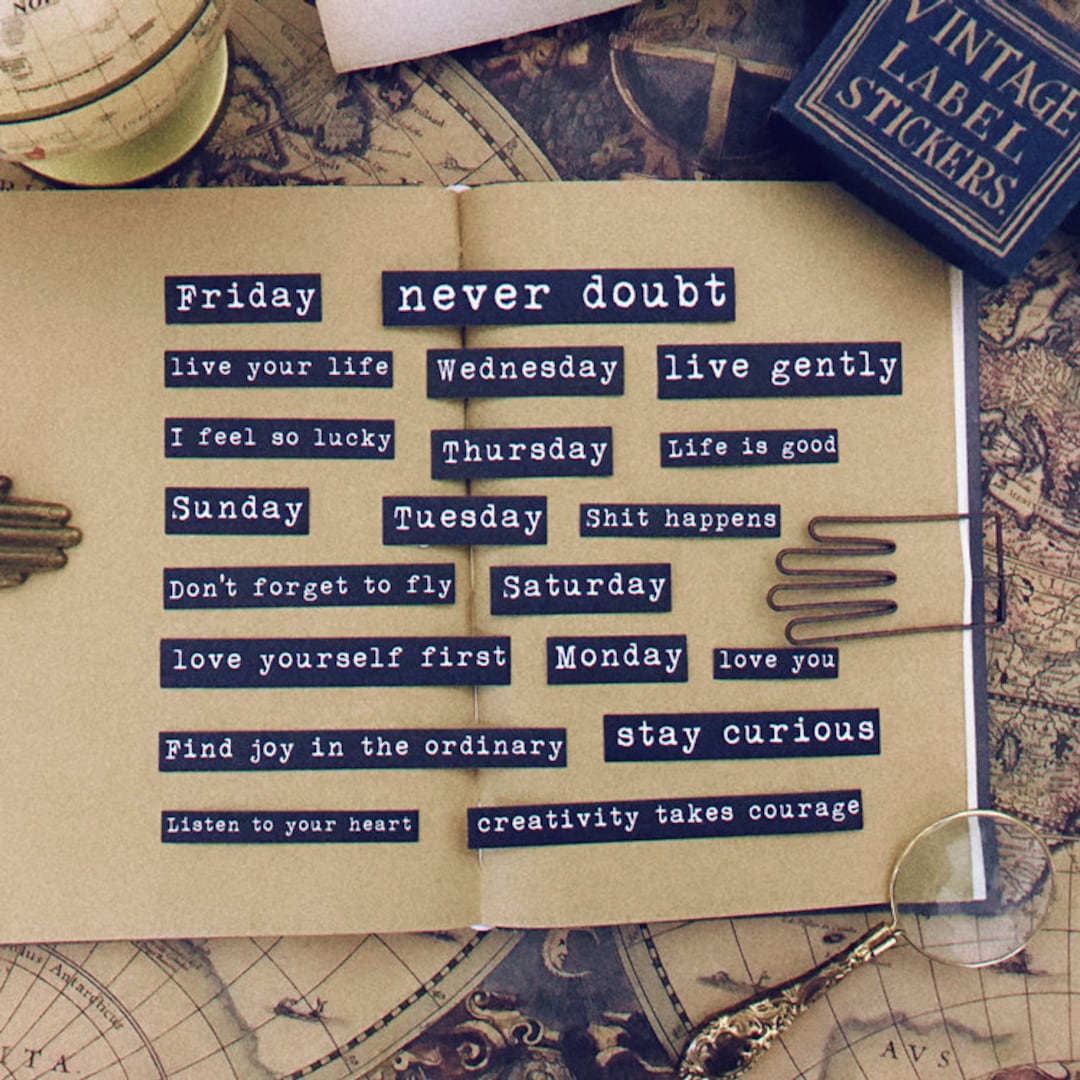 VINTAGE
LABEL
STICKERS.
Friday never doubt
live your life Wednesday live gently
I feel so lucky Thursday Life is good
Sunday Tuesday Shit happens
Don't forget to fly Saturday
love yourself first Monday love you
Find joy in the ordinary stay curious
Listen to your heart creativity takes courage
AVS